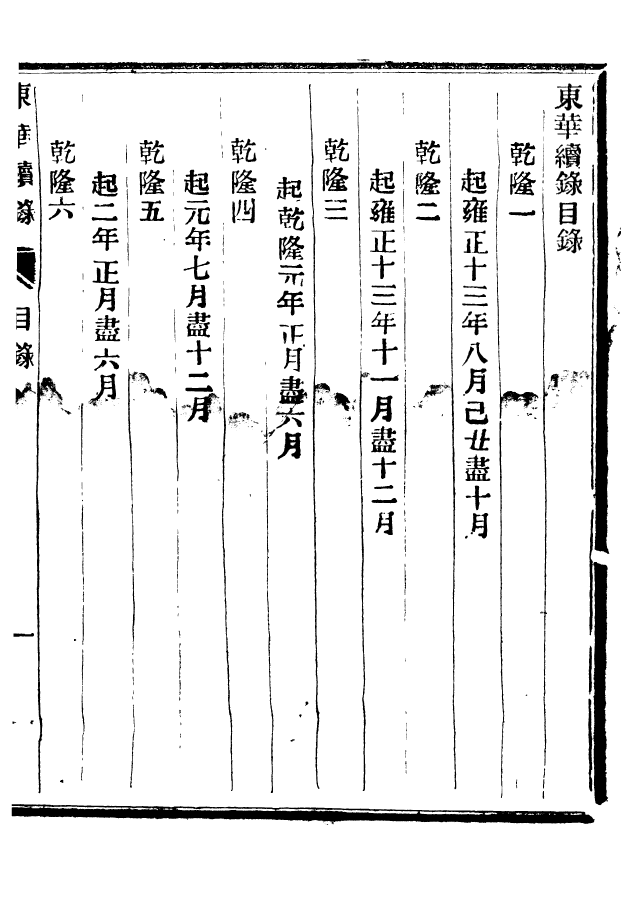 東華續錄目錄
乾隆一
起雍正十三年八月己丑盡十月
乾隆二
起雍正十三年十一月盡十二月
乾隆三
起乾隆元年正月盡六月
乾隆四
起元年七月盡十二月
乾隆五
起二年正月盡六月
乾隆六
東華續錄 目錄 一